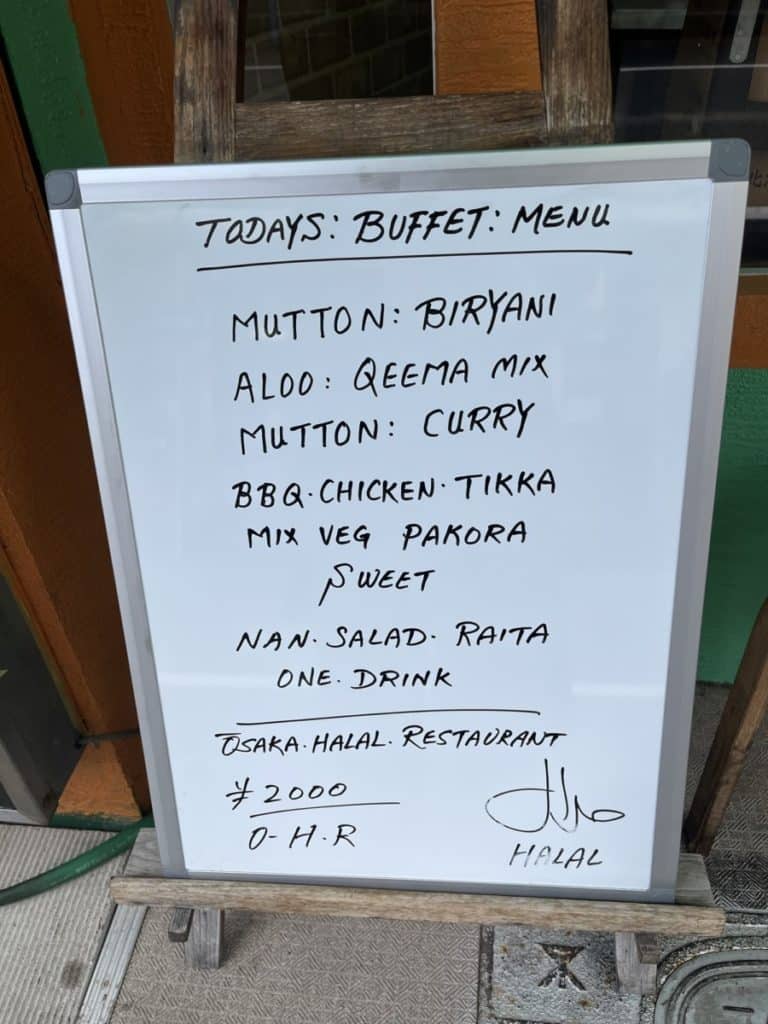 TODAYS: BUFFET: MENU
MUTTON: BIRYANI
ALOO: QEEMA MIX
MUTTON: CURRY
BBQ. CHICKEN. TIKKA
MIX VEG PAKORA
SWEET
NAN. SALAD. RAITA
ONE. DRINK
OSAKA. HALAL. RESTAURANT
¥2000
O-H.R
حلال
HALAL